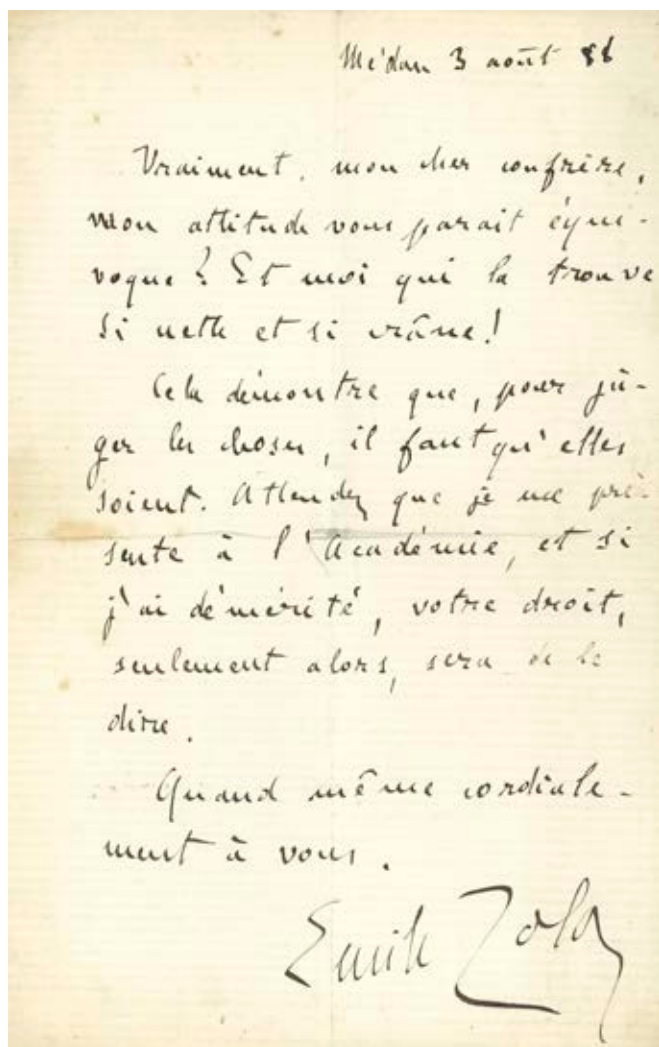 Médan 3 août 88
Vraiment, mon cher confrère,
mon attitude vous parait équi-
voque? Et moi qui la trouve
si nette et si crâne!
Cela démontre que, pour ju-
ger les choses, il faut qu'elles
soient. Attendez que je me pré-
sente à l'Académie, et si
j'ai démérité, votre droit,
seulement alors, sera de le
dire.
Quand même cordiale-
ment à vous.
Emile Zola